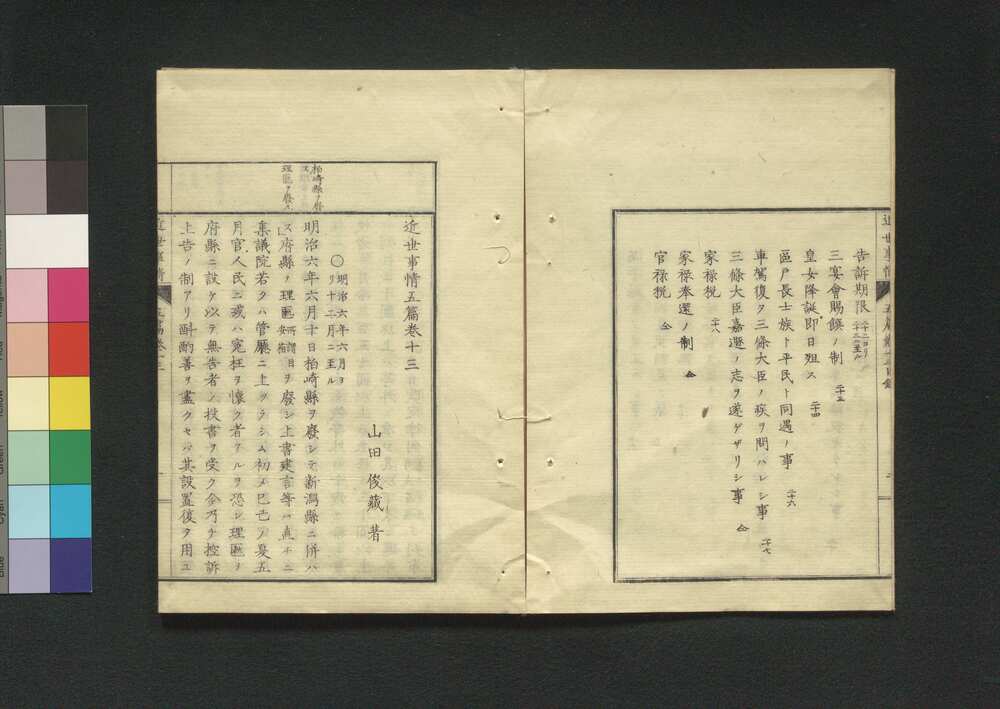 告訴期限 二十二ヨリ二十三ニ至ル
三宴會賜饌ノ制 二十三
皇女降誕即日殂ス 二十四
區戸長士族ト平民ト同遇ノ事 二十六
車駕復タ三條大臣ノ疾ヲ問ハレシ事 二十七
三條大臣嘉遯ノ志ヲ遂ゲザリシ事 仝
家禄税 二十八
家禄奉還ノ制 仝
官禄税 仝
近世事情五篇巻十三
山田俊蔵著
○明治六年六月ヨリ十二月ニ至ル
柏崎縣ヲ廢
理匭ヲ廢ス
明治六年六月十日柏崎縣ヲ廢シテ新潟縣ニ併ハ
ス府縣ノ理匭所謂目安箱ヲ廢シ上書建言等ハ直ホニ
集議院若クハ管廳ニ上ツラシム初メ己巳ノ夏五
月官人民ニ或ハ寃枉ヲ懷ク者アルヲ恐レ理匭ヲ
府縣ニ設ケ以テ無告者ノ投書ヲ受ク今乃チ控訴
上告ノ制アリ斟酌善ヲ盡クセバ其設置復タ用ユ
近世事情 五篇巻十三